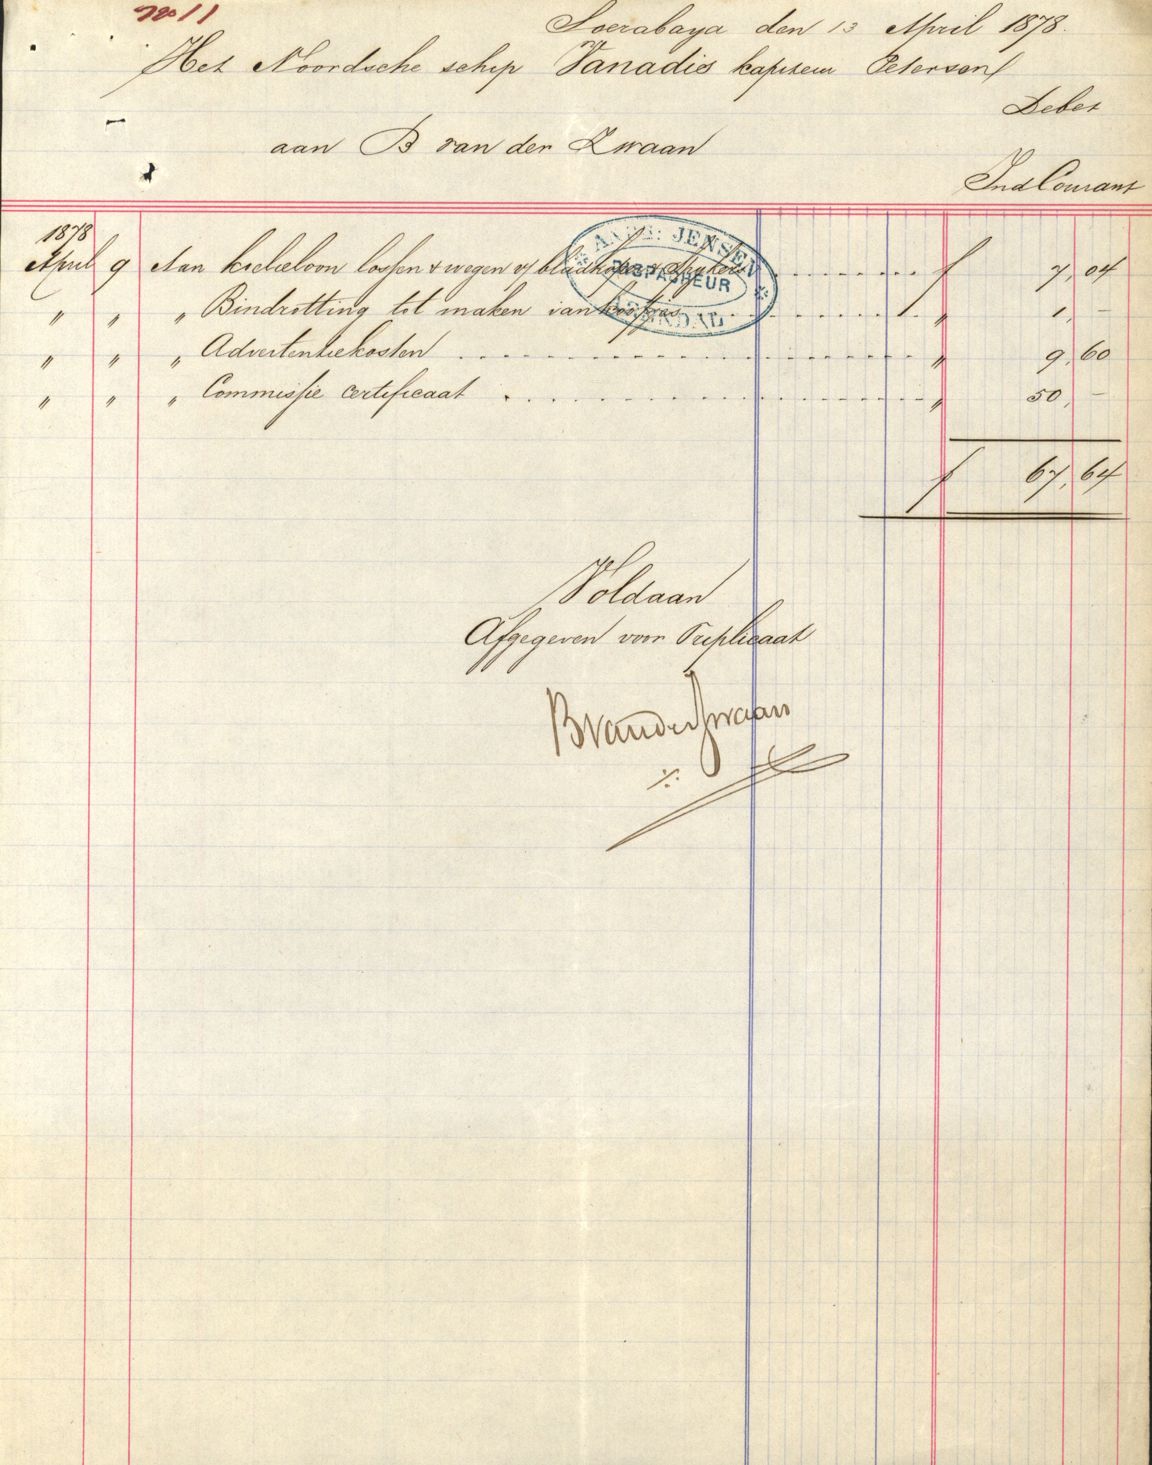 No 11
Soerabaya den 13 April 1878.
Het Noordsche schip Vanadis kapitein Petersen
Debet
aan B van der Zwaan
Ind Courant
1878
April 9 Aan koelieloon lossen & wegen v/ bladkoper & spijkers f 7,04
" " " Bindrotting tot maken van " 1,-
" " " Advertentiekosten " 9,60
" " " Commissie certificaat " 50,-
f 67,64
ANDR. JENSEN
DISPACHEUR
ARENDAL
Voldaan
Afgegeven voor Triplicaat
BvanderZwaan